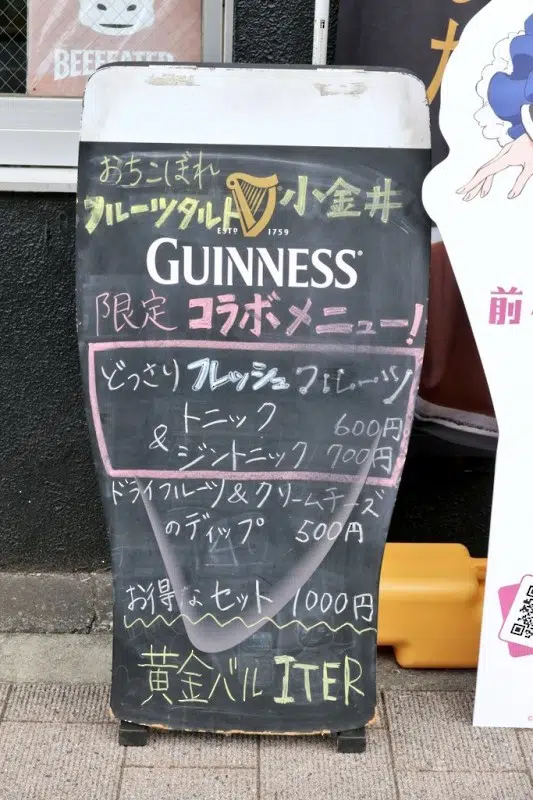 BEEFEATER
おちこぼれ
フルーツタルト 小金井
ESTD 1759
GUINNESS
限定 コラボメニュー!
どっさり フレッシュフルーツ
トニック 600円
& ジントニック 700円
ドライフルーツ&クリームチーズ
のディップ 500円
お得なセット 1000円
黄金バル ITER
前